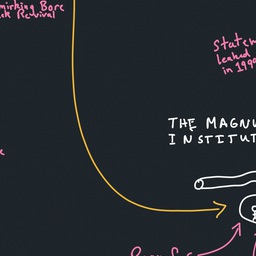 mirking Bore
ck Revival
Statem
leaked
in 1990
THE MAGNU
INSTITUT